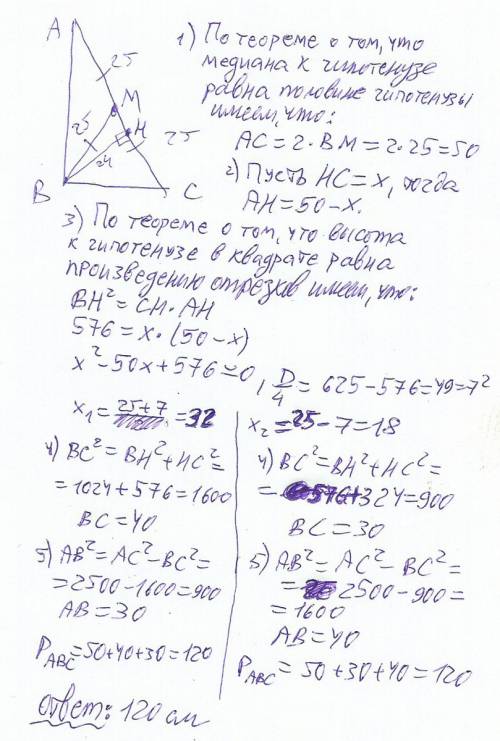 A
25
M
H
25
24
25
B
C
1) По теореме о том, что
медиана к гипотенузе
равна половине гипотенузы
имеем, что:
AC = 2·BM = 2·25 = 50
2) Пусть HC = x, тогда
AH = 50 - x.
3) По теореме о том, что высота
к гипотенузе в квадрате равна
произведению отрезков имеем, что:
BH² = CH·AH
576 = x·(50 - x)
x² - 50x + 576 = 0, D/4 = 625 - 576 = 49 = 7²
x₁ = 25 + 7 = 32
4) BC² = BH² + HC² =
= 1024 + 576 = 1600
BC = 40
5) AB² = AC² - BC² =
= 2500 - 1600 = 900
AB = 30
P_ABC = 50 + 40 + 30 = 120
x₂ = 25 - 7 = 18
4) BC² = BH² + HC² =
= 576 + 324 = 900
BC = 30
5) AB² = AC² - BC² =
= 2500 - 900 =
= 1600
AB = 40
P_ABC = 50 + 30 + 40 = 120
Ответ: 120 см